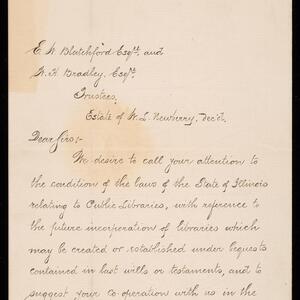 E. W. Blatchford Esq. and
W. H. Bradley, Esq.
Trustees,
Estate of W. L. Newberry, Dec'd.
Dear Sirs;-
We desire to call your attention to
the condition of the laws of the State of Illinois
relating to Public Libraries, with reference to
the future incorporation of libraries which
may be created or established under bequests
contained in last wills or testaments, and to
suggest your co-operation with us in the